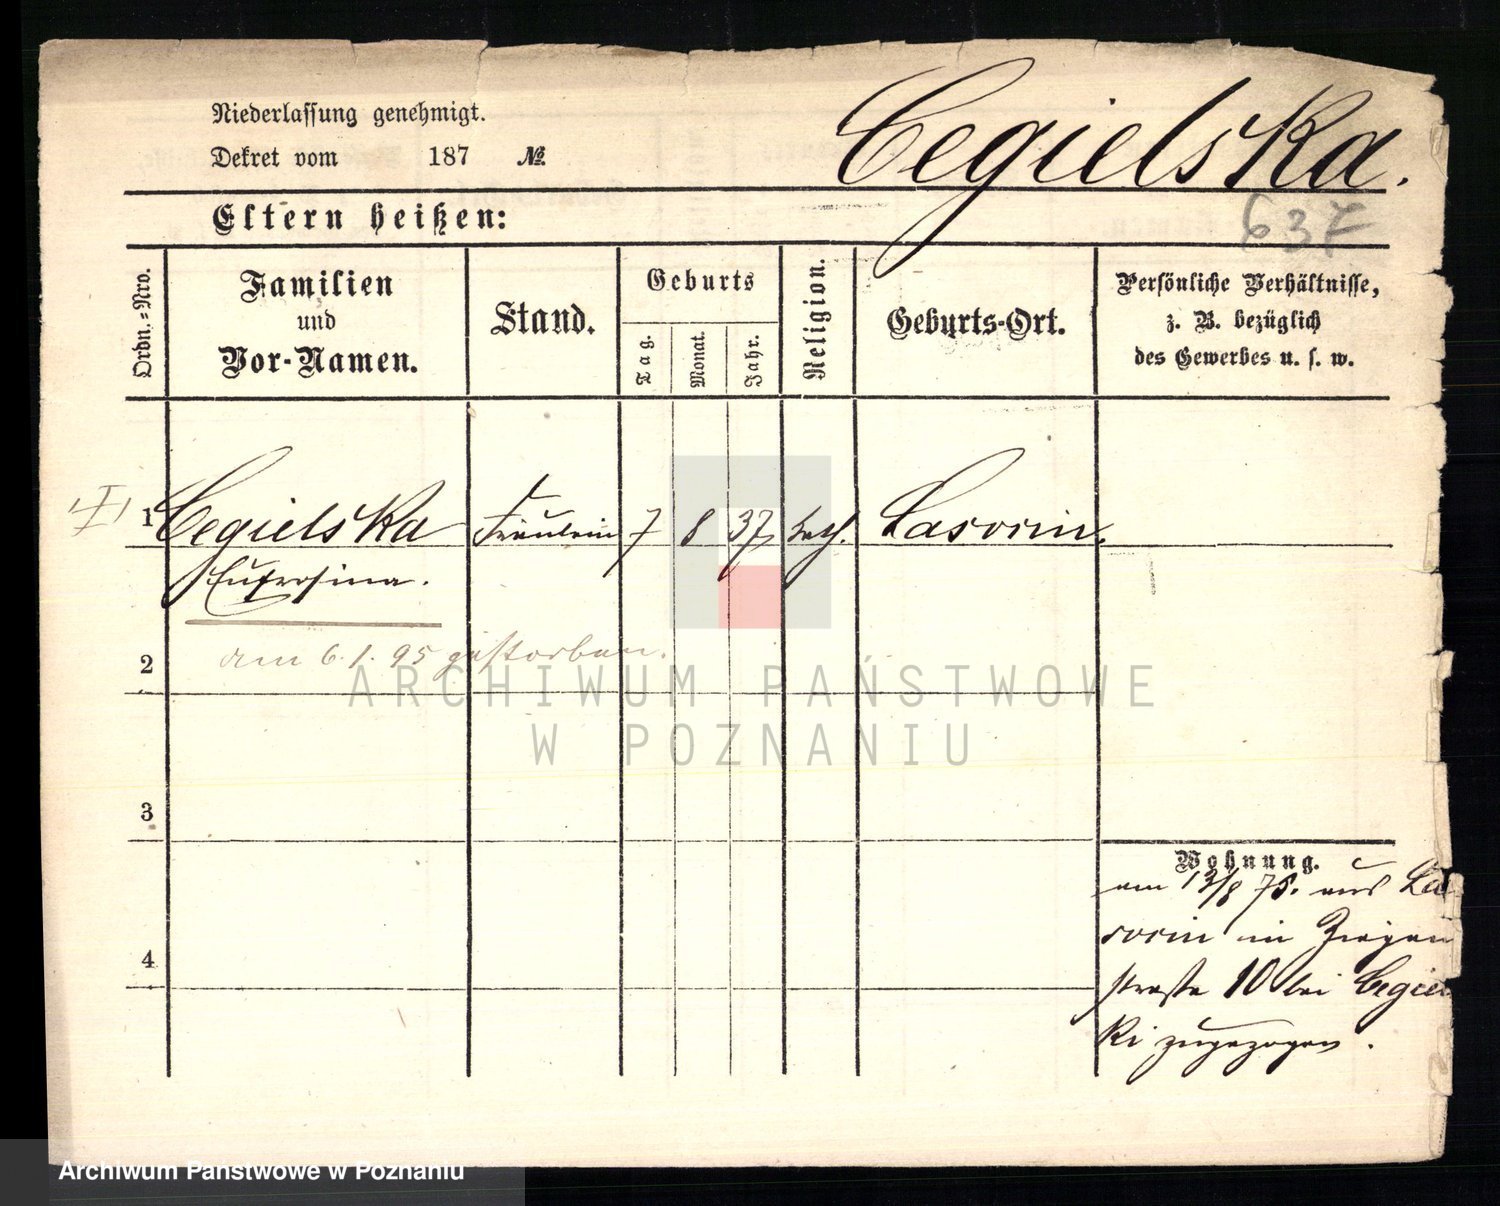 Niederlassung genehmigt.
Dekret vom 187 №
Cegielska.
637
Eltern heißen:
Ordn.-Nro.
Familien und Vor-Namen.
Stand.
Geburts
Tag.
Monat.
Jahr.
Religion.
Geburts-Ort.
Persönliche Verhältnisse,
z. B. bezüglich
des Gewerbes u. s. w.
1 Cegielska Fräulein 7 8 37 kath. Lasocin.
Eufrosina.
2 am 6.1.95 gestorben.
3
4
Wohnung.
am 13/8 75. aus La
socin in Ziegen
straße 10 bei Cegiel
ki zugezogen.
ARCHIWUM PAŃSTWOWE
W POZNANIU
Archiwum Państwowe w Poznaniu